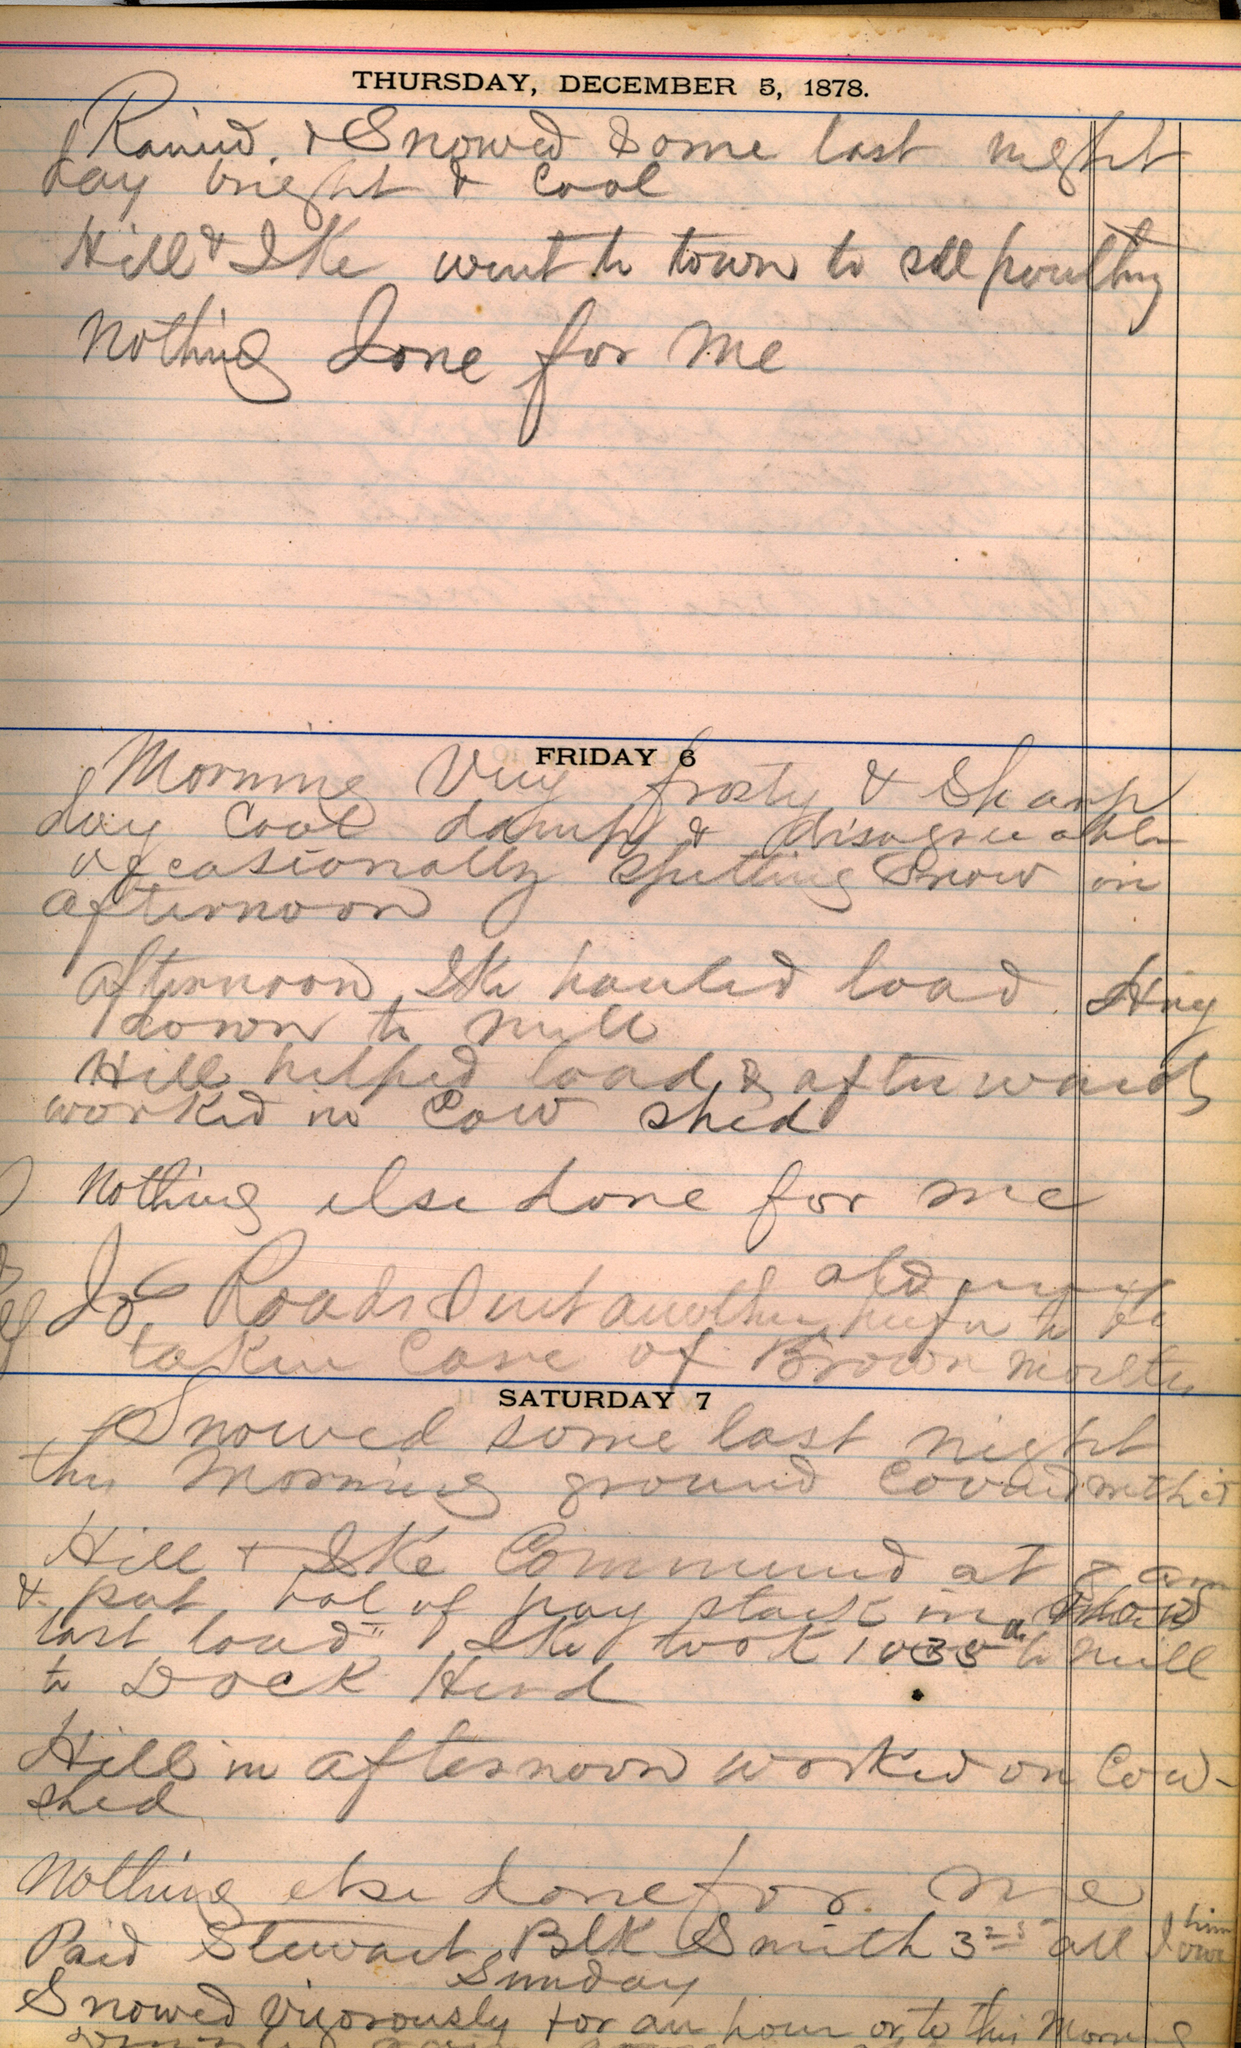 THURSDAY, DECEMBER 5, 1878.
Rained & Snowed Some last night
day bright & Cool
Hill & Ike went to town to sell poultry
Nothing done for me
FRIDAY 6
Morning Very frosty & Sharp
day Cool damp & disagreeable
occasionally spitting Snow in
afternoon
afternoon Ike hauled load Hay
down to Mill
Hill helped load & afterwards
worked in Cow shed
Nothing else done for me
Joe Roads sent another heifer to be
taken Care of Brown
SATURDAY 7
Snowed some last night
this Morning ground Covered with it
Hill & Ike Commenced at 8 am
& put bal of hay stack in
last load Ike took 1035 to Mill
to Dock Hurd
Hill in afternoon worked on Cow-
shed
Nothing else done for me
Paid Stewart Blk Smith 3 25 all I owe him
Sunday
Snowed Vigorously for an hour or to this Morning